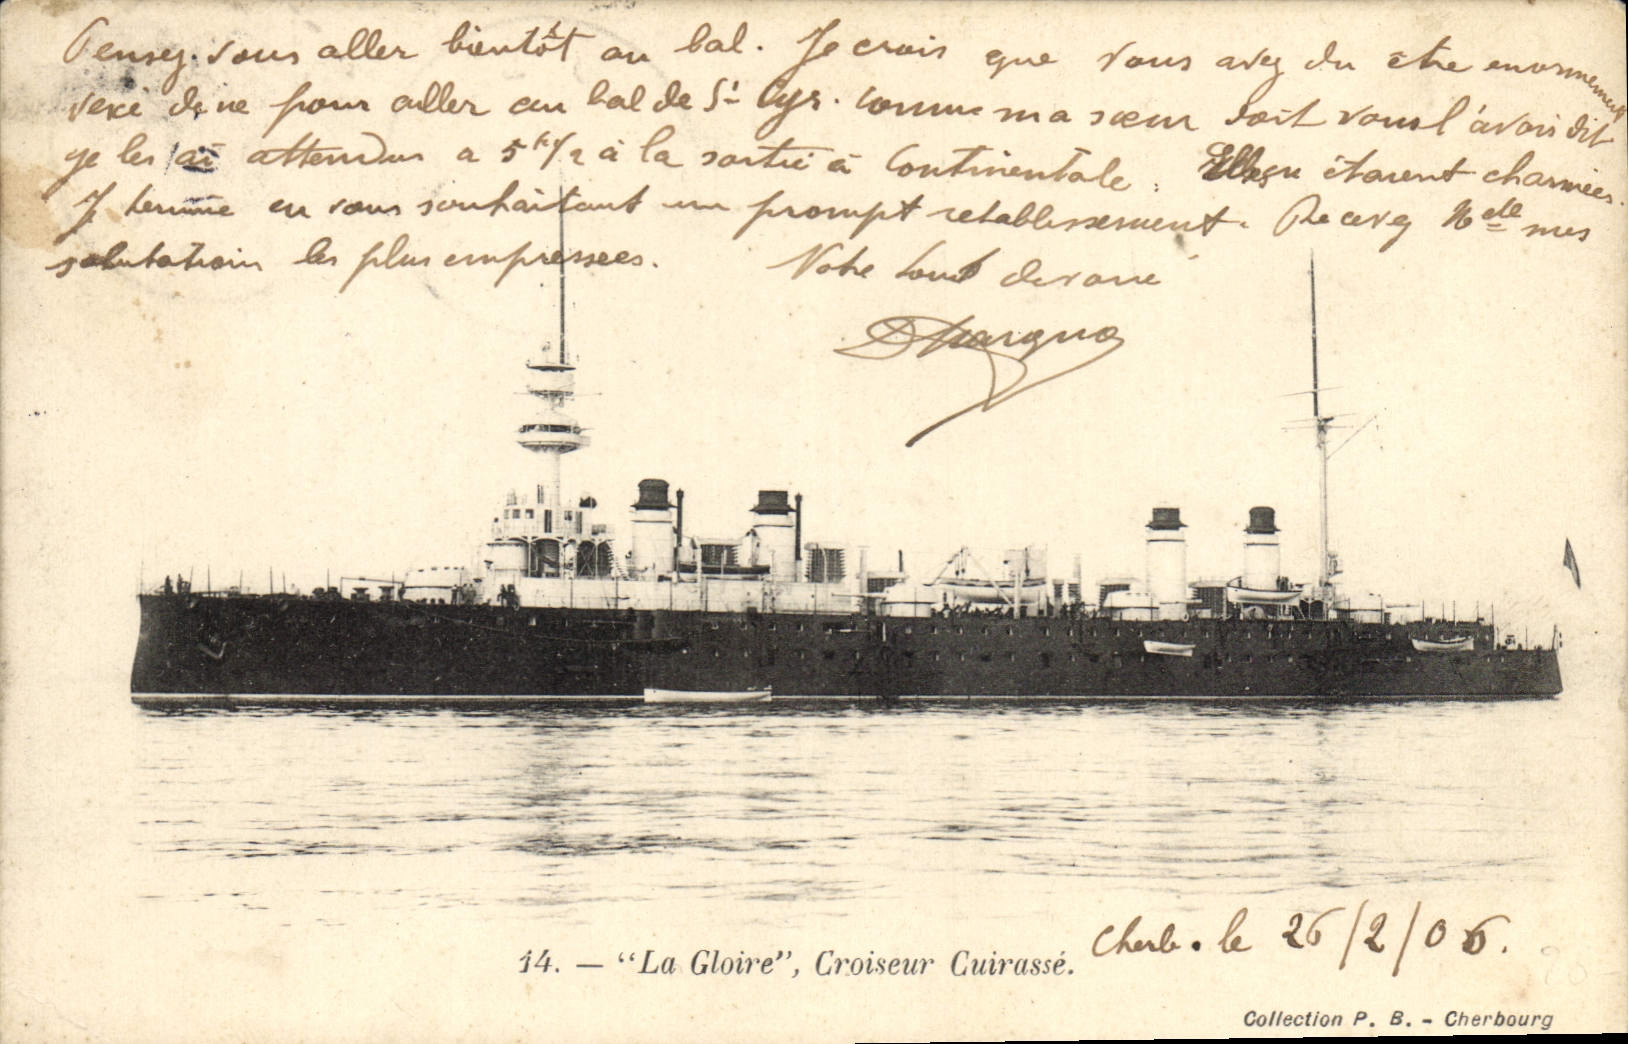 Pensez-vous aller bientôt au bal. Je crois que vous avez du être enormement
vexé de ne pour aller au bal de St Cyr. comme ma sœur doit vous l'avoir dit
je les ai attendus a 5h 1/2 à la sortie à Continentale. Elles en étaient charmées.
Je termine en vous souhaitant un prompt retablissement. Recevez Mdelle mes
salutations les plus empressées. Votre tout devoué
14. — "La Gloire", Croiseur Cuirassé.
Cherb. le 26/2/06.
Collection P. B. - Cherbourg